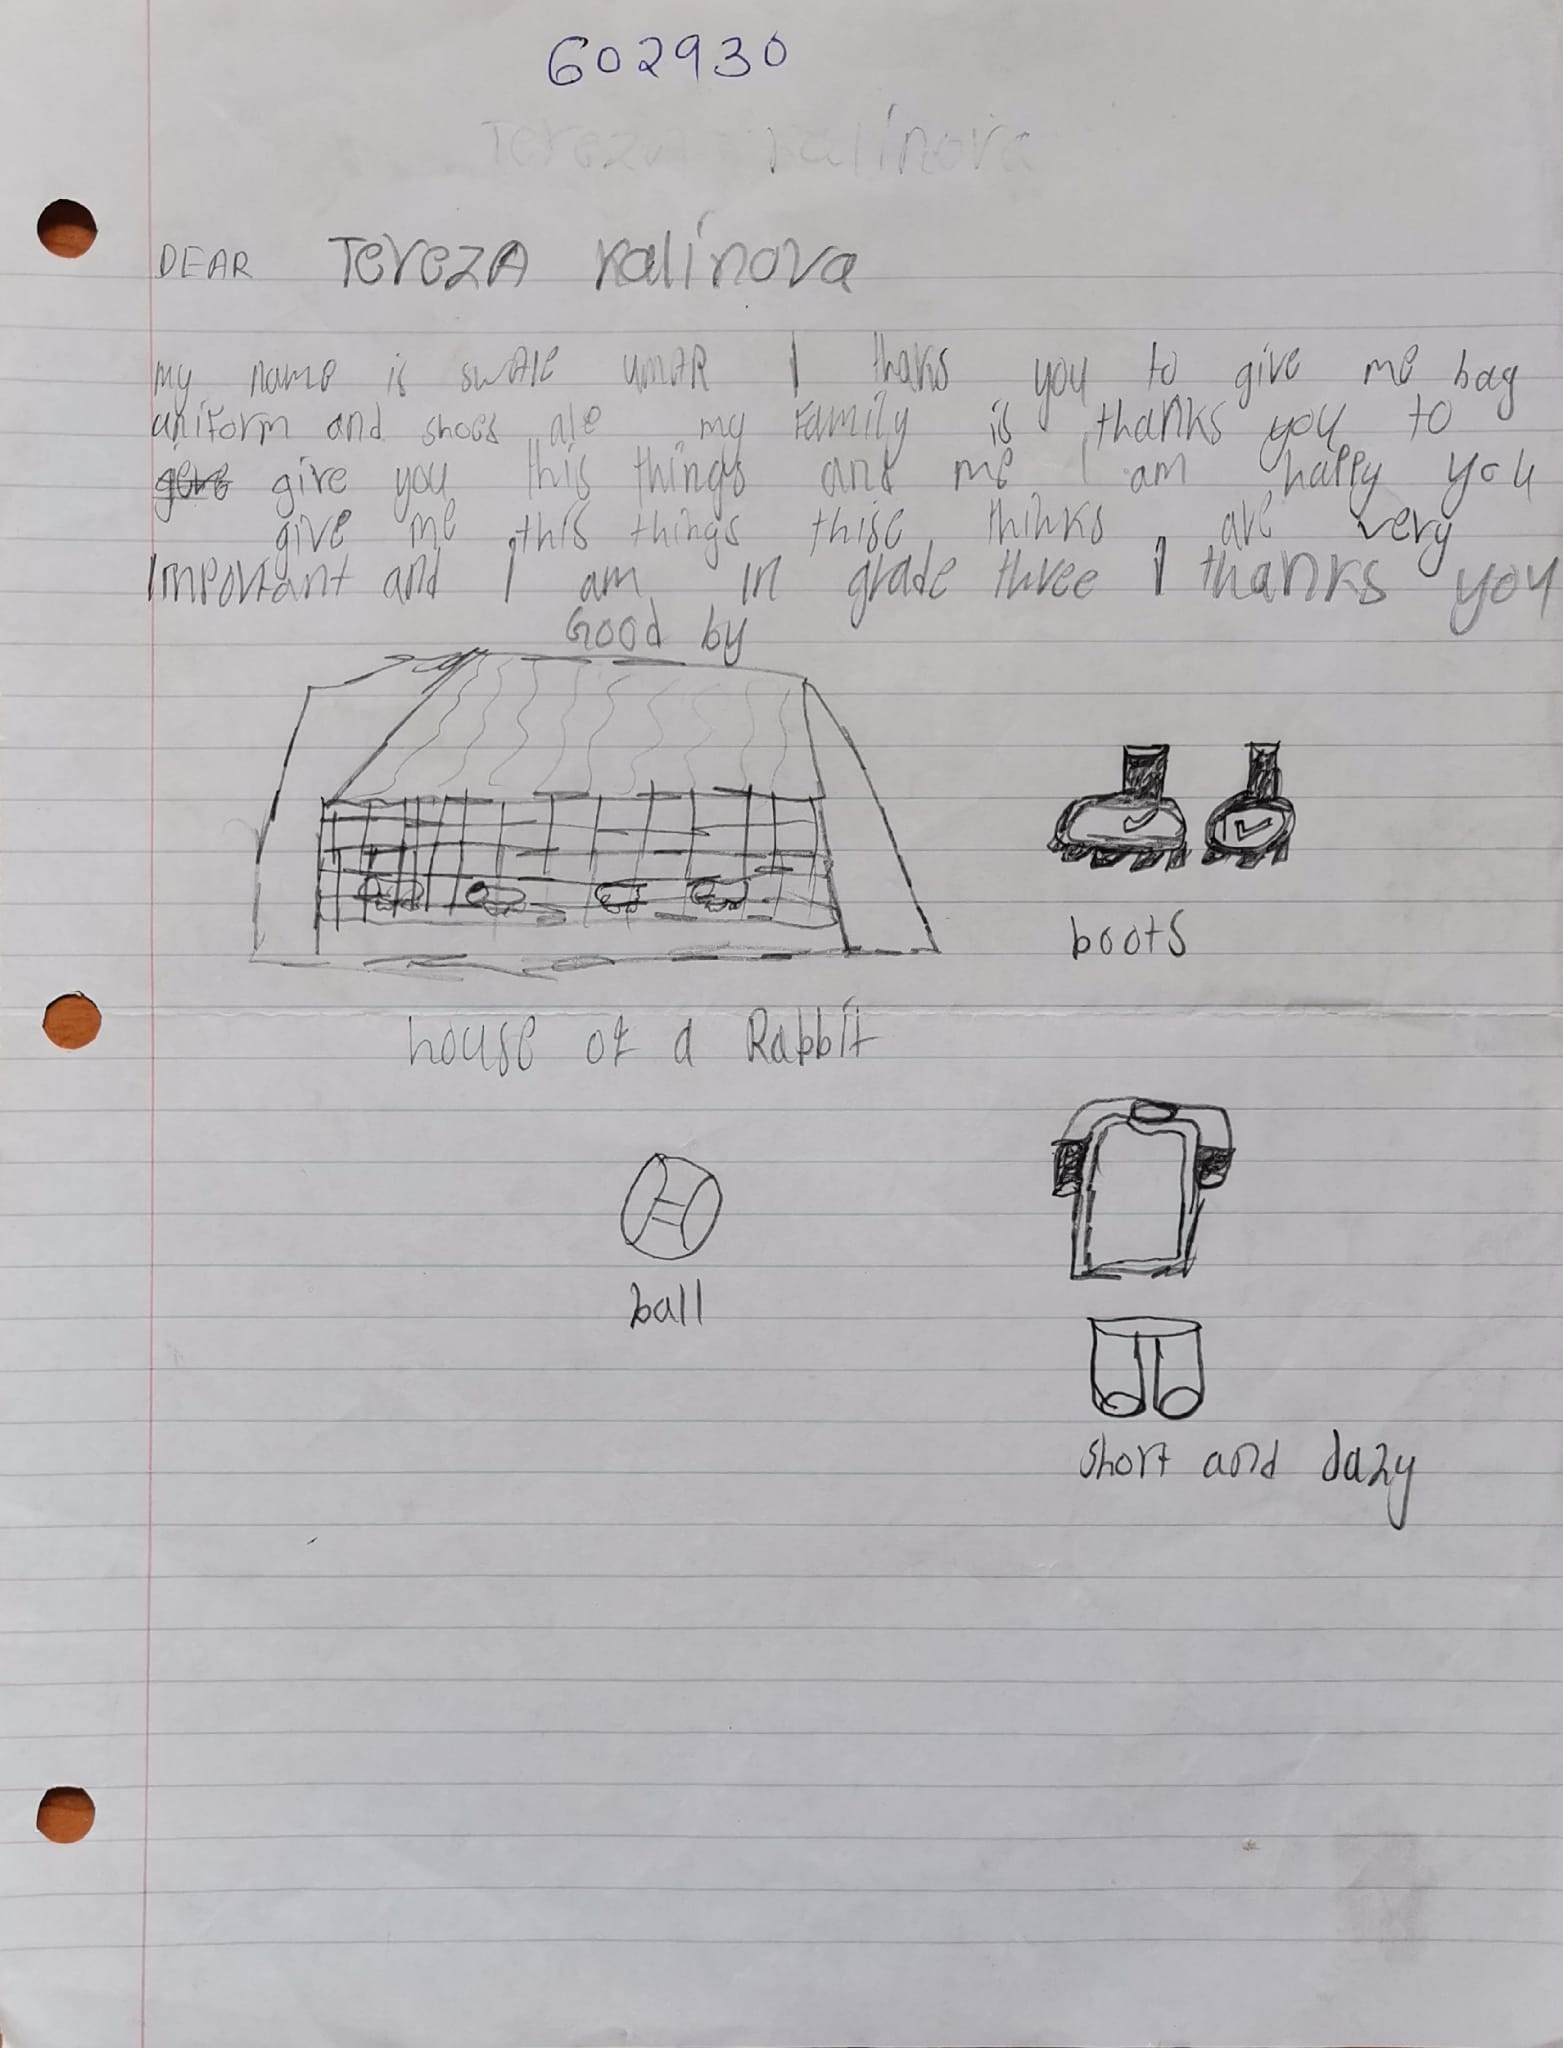 602930
Tereza Kalinova
DEAR TerezA Kalinova
my name is swAle umAR I thaks you to give me bag
uniform and shoes ale my family is thanks you to
give you this things and me I am happy you
give me this things thise thinks are very
Important and I am in grade three I thanks you
Good by
boots
house of a Rabbit
ball
short and dazy